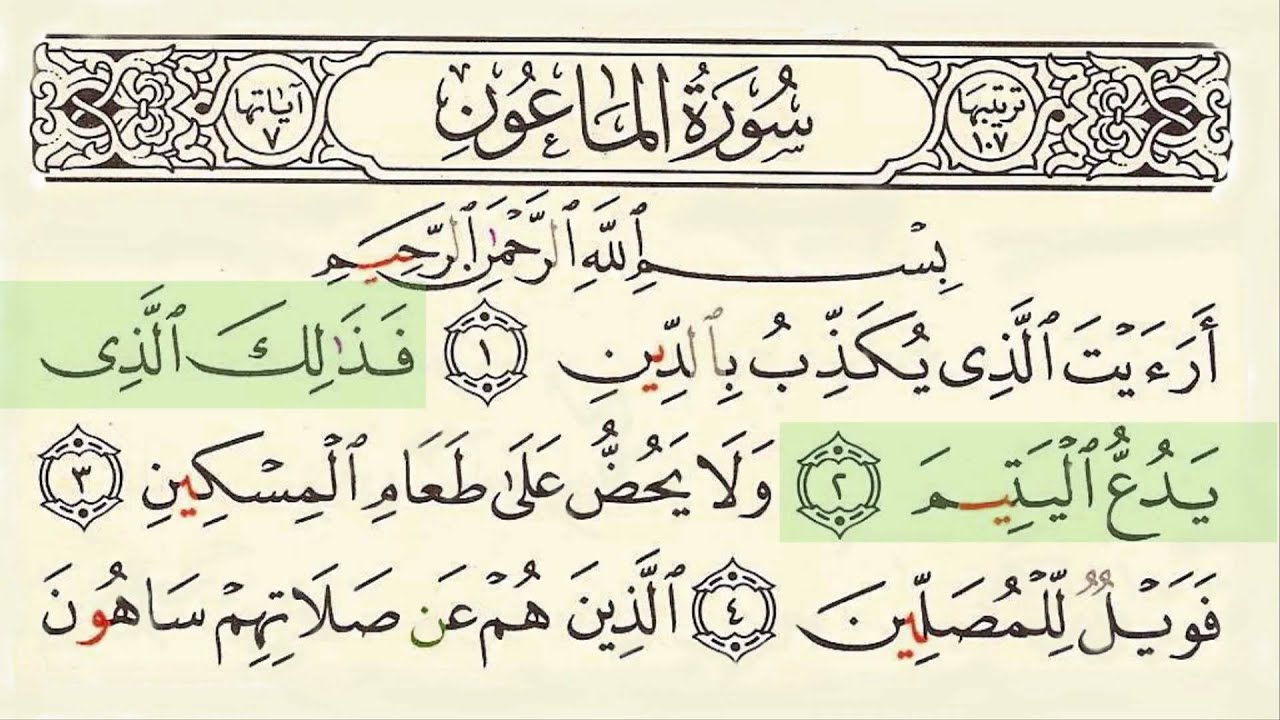 ترتيبها ١٠٧
سُورَةُ المَاعُونِ
آيَاتها ٧
بِسْمِ ٱللَّهِ ٱلرَّحْمَٰنِ ٱلرَّحِيمِ
أَرَءَيْتَ ٱلَّذِى يُكَذِّبُ بِٱلدِّينِ ١ فَذَٰلِكَ ٱلَّذِى
يَدُعُّ ٱلْيَتِيمَ ٢ وَلَا يَحُضُّ عَلَىٰ طَعَامِ ٱلْمِسْكِينِ ٣
فَوَيْلٌ لِّلْمُصَلِّينَ ٤ ٱلَّذِينَ هُمْ عَن صَلَاتِهِمْ سَاهُونَ